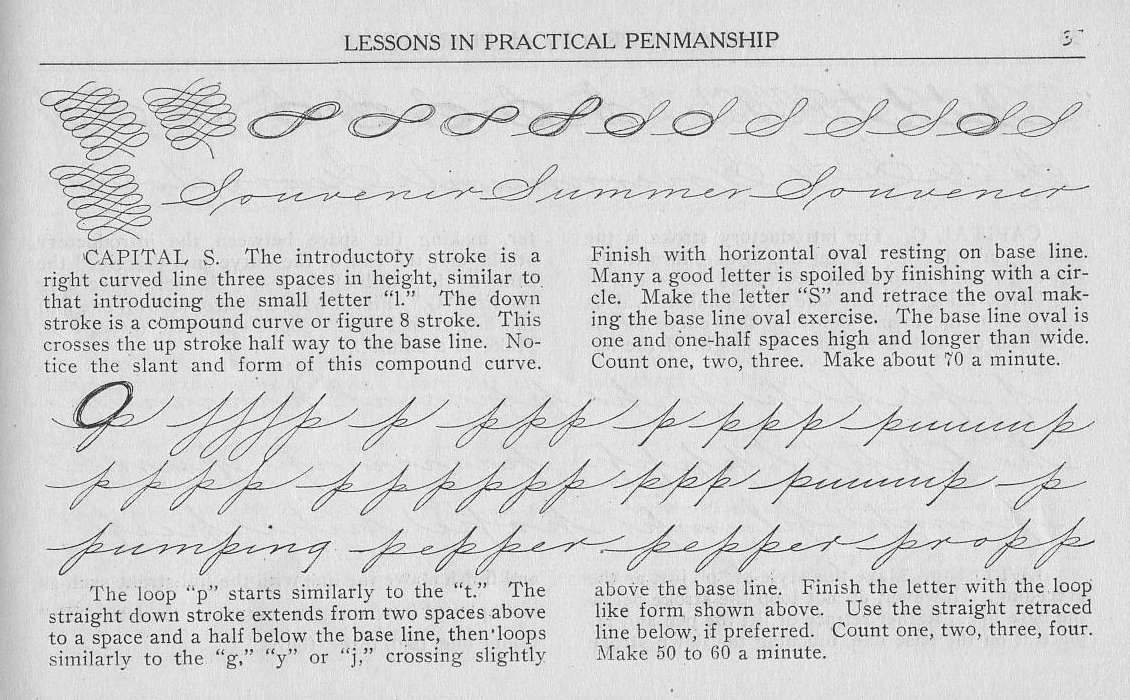 LESSONS IN PRACTICAL PENMANSHIP
S S S S S S S
Souvenir Summer Souvenir
CAPITAL S. The introductory stroke is a
right curved line three spaces in height, similar to
that introducing the small letter “l.” The down
stroke is a compound curve or figure 8 stroke. This
crosses the up stroke half way to the base line. No-
tice the slant and form of this compound curve.
Finish with horizontal oval resting on base line.
Many a good letter is spoiled by finishing with a cir-
cle. Make the letter “S” and retrace the oval mak-
ing the base line oval exercise. The base line oval is
one and one-half spaces high and longer than wide.
Count one, two, three. Make about 70 a minute.
p p p p p p p p p p
p p p p p p p p p p p p p p p
pumping pepper pepper propp
The loop “p” starts similarly to the “t.” The
straight down stroke extends from two spaces above
to a space and a half below the base line, then loops
similarly to the “g,” “y” or “j,” crossing slightly
above the base line. Finish the letter with the loop
like form shown above. Use the straight retraced
line below, if preferred. Count one, two, three, four.
Make 50 to 60 a minute.